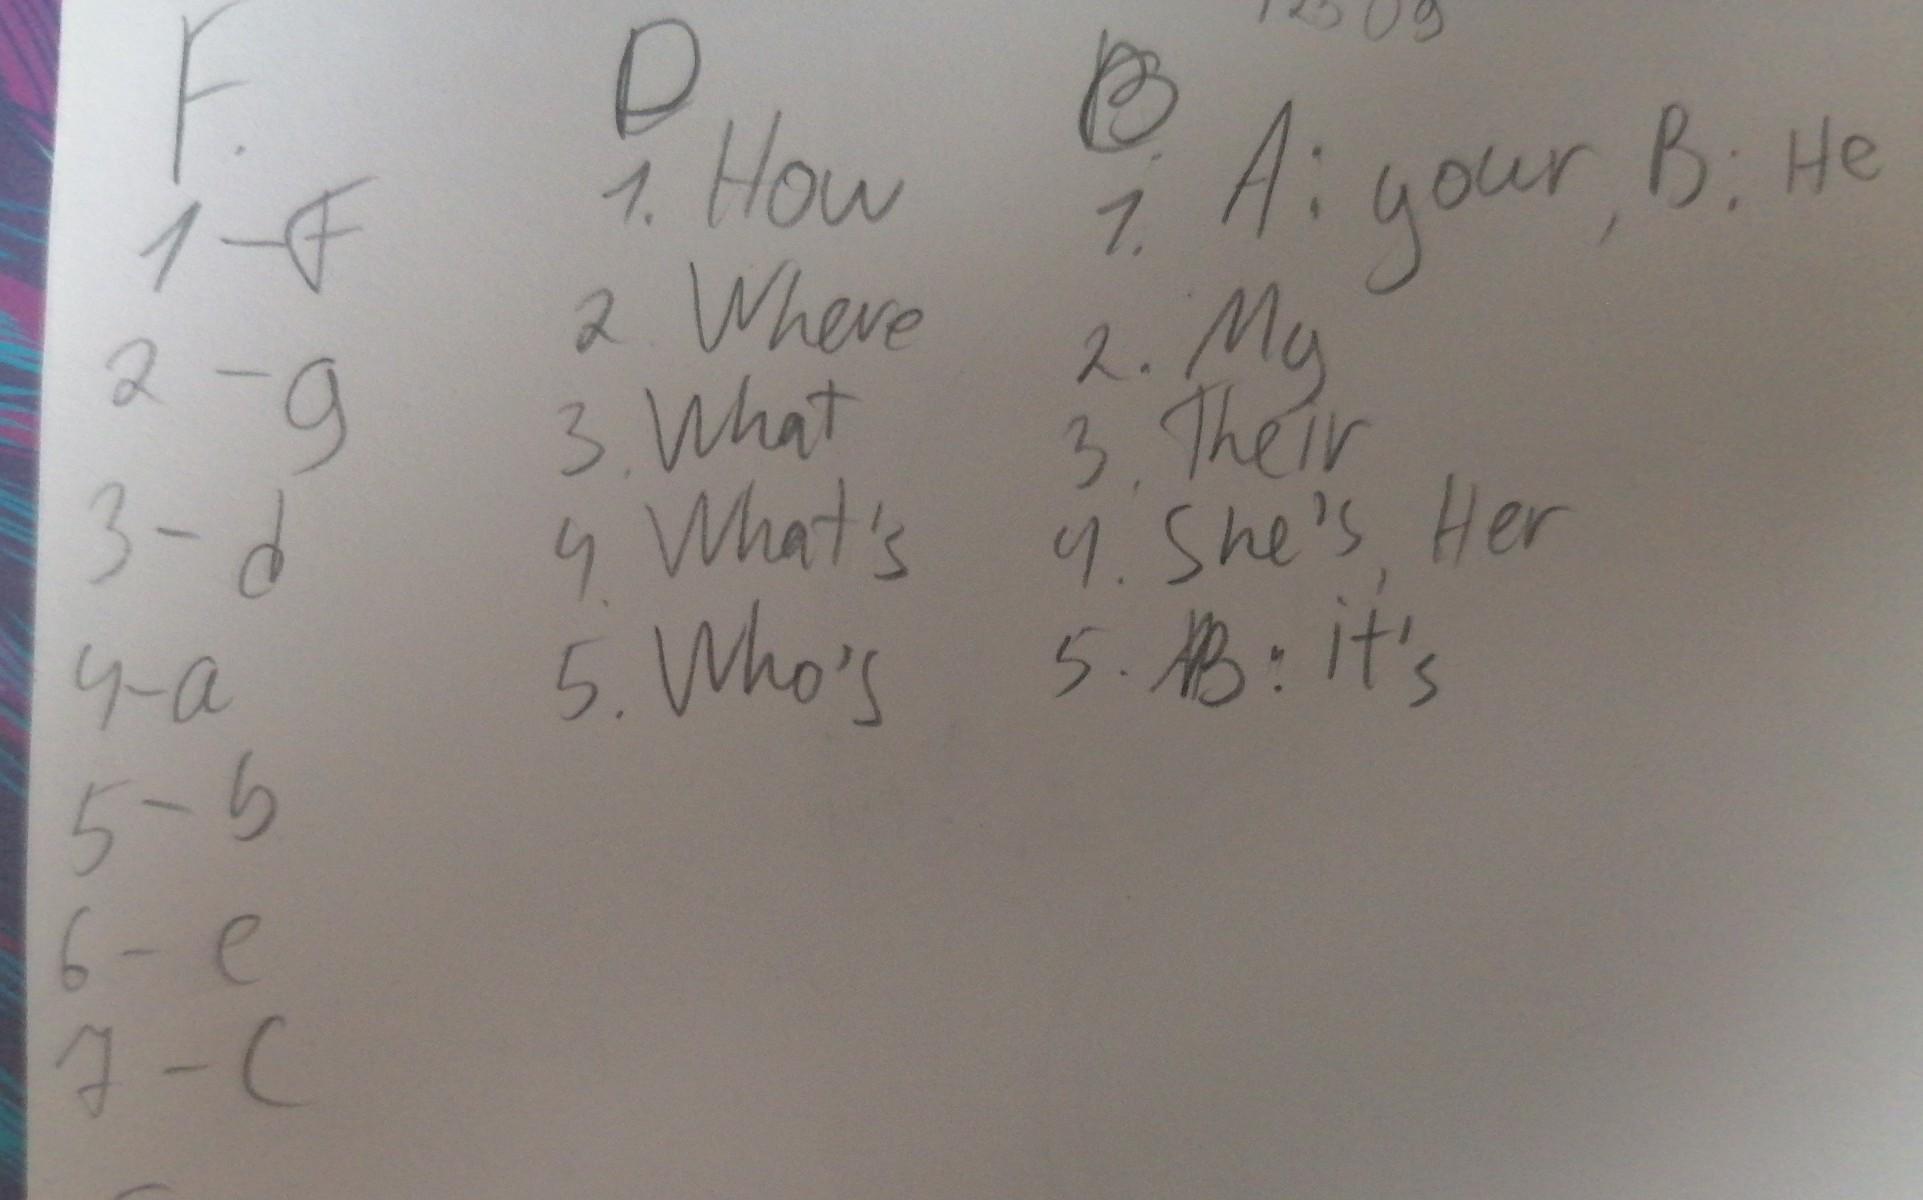 F.
1-F
2-g
3-d
4-a
5-b
6-e
7-c
D
1. How
2. Where
3. What
4. What's
5. Who's
B
1. A: your, B: He
2. My
3. Their
4. She's, Her
5. B: it's